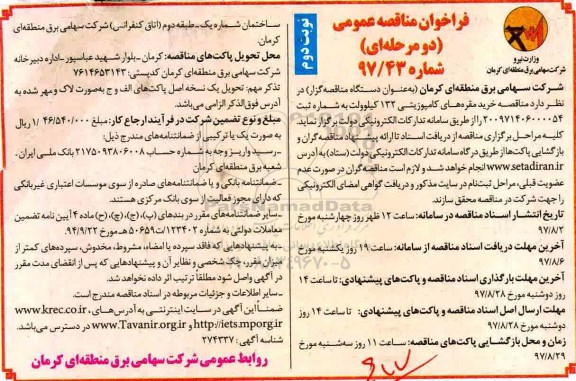 فراخوان مناقصه عمومی
(دو مرحله‌ای)
شماره ۹۷/۴۳
نوبت دوم
وزارت نیرو
شرکت سهامی برق منطقه‌ای کرمان
شرکت سهامی برق منطقه‌ای کرمان (به‌عنوان دستگاه مناقصه‌گزار) در
نظر دارد مناقصه خرید مقره‌های کامپوزیتی ۱۳۲ کیلوولت به شماره ثبت
۲۰۰۹۷۱۴۰۶۰۰۰۰۵۴ را از طریق سامانه تدارکات الکترونیکی دولت برگزار نماید.
کلیه مراحل برگزاری مناقصه از دریافت اسناد تا ارائه پیشنهاد مناقصه‌گران و
بازگشایی پاکت‌ها از طریق درگاه سامانه تدارکات الکترونیکی دولت (ستاد) به آدرس
www.setadiran.ir انجام خواهد شد و لازم است مناقصه‌گران در صورت عدم
عضویت قبلی، مراحل ثبت‌نام در سایت مذکور و دریافت گواهی امضای الکترونیکی
را جهت شرکت در مناقصه محقق سازند.
تاریخ انتشار اسناد مناقصه در سامانه: ساعت ۱۲ ظهر روز چهارشنبه مورخ
۹۷/۸/۲
آخرین مهلت دریافت اسناد مناقصه از سامانه: ساعت ۱۹ روز یکشنبه مورخ
۹۷/۸/۶
آخرین مهلت بارگذاری اسناد مناقصه و پاکت‌های پیشنهادی: تا ساعت ۱۴
روز دوشنبه مورخ ۹۷/۸/۲۸
مهلت ارسال اصل اسناد مناقصه و پاکت‌های پیشنهادی: تا ساعت ۱۴ روز
دوشنبه مورخ ۹۷/۸/۲۸
زمان و محل بازگشایی پاکت‌های مناقصه: ساعت ۱۱ روز سه‌شنبه مورخ ۹۷/۸/۲۹
ساختمان شماره یک ـ طبقه دوم (اتاق کنفرانس) شرکت سهامی برق منطقه‌ای
کرمان.
محل تحویل پاکت‌های مناقصه: کرمان ـ بلوار شهید عباسپور ـ اداره دبیرخانه
شرکت سهامی برق منطقه‌ای کرمان کدپستی: ۷۶۱۴۶۵۳۱۴۳
تذکر مهم: تحویل یک نسخه اصل پاکت‌های الف و ج به‌صورت لاک و مهر شده به
آدرس فوق‌الذکر الزامی می‌باشد.
مبلغ و نوع تضمین شرکت در فرآیند ارجاع کار: مبلغ ۱/۰۴۶/۵۴۰/۰۰۰ ریال
به صورت یک یا ترکیبی از ضمانتنامه‌های مندرج ذیل:
ـ رسید واریز وجه به شماره حساب ۲۱۷۵۰۹۳۸۰۶۰۰۸ بانک ملی ایران ـ
شعبه برق منطقه‌ای کرمان
ـ ضمانتنامه بانکی و یا ضمانتنامه‌های صادره از سوی موسسات اعتباری غیربانکی
که دارای مجوز فعالیت از سوی بانک مرکزی هستند.
ـ سایر ضمانتنامه‌های مقرر در بندهای (پ)، (ج)، (چ)، (ح) ماده ۴ آیین نامه تضمین
معاملات دولتی به شماره ۱۲۳۴۰۲/ت۵۰۶۵۹هـ مورخ ۹۴/۹/۲۲.
ـ به پیشنهادهایی که فاقد سپرده یا امضاء، مشروط، مخدوش، سپرده‌های کمتر از
میزان مقرر، چک شخصی و نظایر آن و پیشنهادهایی که پس از انقضای مدت مقرر
در آگهی واصل شود مطلقاً ترتیب اثر داده نخواهد شد.
ـ سایر اطلاعات و جزئیات مربوطه در اسناد مناقصه مندرج است.
ضمناً این آگهی در سایت اینترنتی به آدرس‌های www.krec.co.ir ،
http://iets.mporg.ir و www.Tavanir.org.ir در دسترس می‌باشد.
شناسه آگهی: ۲۷۴۳۳۷
روابط عمومی شرکت سهامی برق منطقه‌ای کرمان